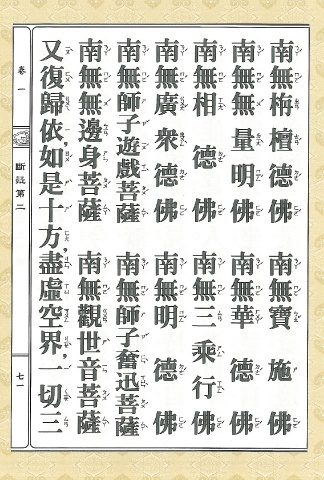 南無栴檀德佛　南無寶施佛
南無無量明佛　南無華德佛
南無相德佛　南無三乘行佛
南無廣衆德佛　南無明德佛
南無師子遊戲菩薩　南無師子奮迅菩薩
南無無邊身菩薩　南無觀世音菩薩
又復歸依，如是十方，盡虛空界，一切三
卷一
斷疑第二
七一